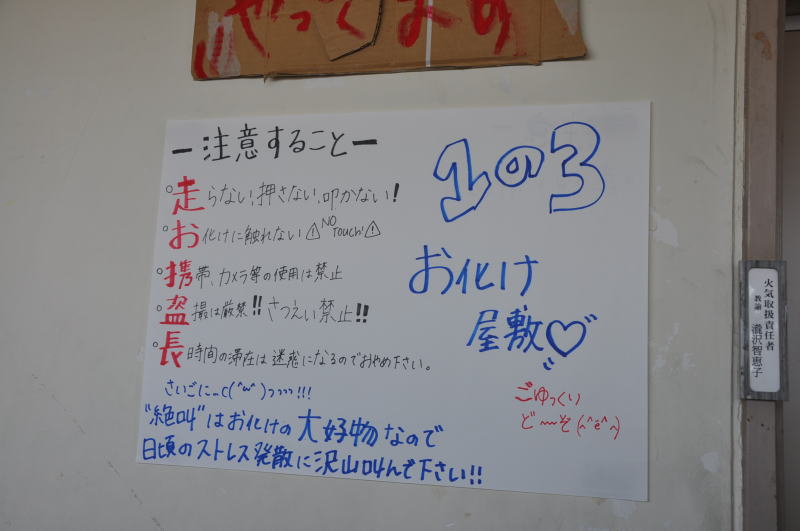 やってます
ー注意することー
1の3
お化け
屋敷♡
ごゆっくり
ど〜〜ぞ(^ё^)
°走らない、押さない、叩かない!
°お化けに触れない⚠NO Touch!⚠
°携帯、カメラ等の使用は禁止
°盗撮は厳禁!!さつえい禁止!!
°長時間の滞在は迷惑になるのでおやめ下さい。
さいごに…c(^w^)っっっっ!!!
"絶叫"はお化けの大好物なので
日頃のストレス発散に沢山叫んで下さい!!
火気取扱責任者
教諭 瀧沢智恵子